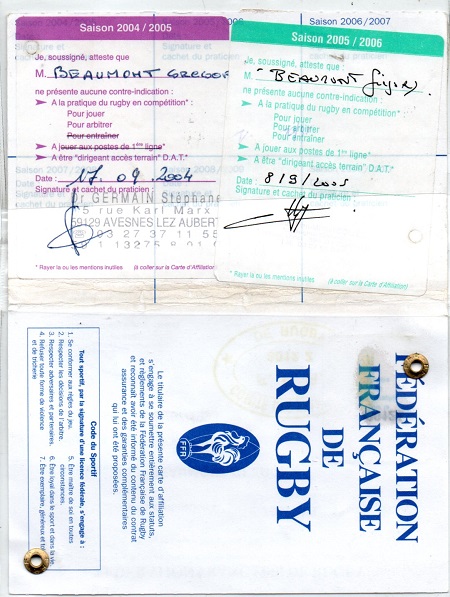 Saison 2004 / 2005
Je, soussigné, atteste que
M. BEAUMONT GREGOR
ne présente aucune contre-indication :
➤ A la pratique du rugby en compétition* :
Pour jouer
Pour arbitrer
Pour entraîner
➤ A jouer aux postes de 1ère ligne*
➤ A être "dirigeant accès terrain" D.A.T.*
Date : 17.09.2004
Signature et cachet du praticien :
Dr GERMAIN Stéphane
5 rue Karl Marx
59129 AVESNES LEZ AUBERT
03 27 37 11 55
* Rayer la ou les mentions inutiles (à coller sur la Carte d'Affiliation)
Saison 2006 / 2007
Saison 2005 / 2006
Je, soussigné, atteste que :
M. BEAUMONT
ne présente aucune contre-indication :
➤ A la pratique du rugby en compétition* :
Pour jouer
Pour arbitrer
Pour entraîner
➤ A jouer aux postes de 1ère ligne*
➤ A être "dirigeant accès terrain" D.A.T.*
Date : 8/9/2005
Signature et cachet du praticien :
* Rayer la ou les mentions inutiles (à coller sur la Carte d'Affiliation)
FÉDÉRATION
FRANÇAISE
DE
RUGBY
FFR
Le titulaire de la présente carte d'affiliation
s'engage à se soumettre entièrement aux statuts,
et règlements de la Fédération Française de Rugby
et reconnaît avoir été informé du contenu du contrat
assurance et des garanties complémentaires
qui lui ont été proposées.
Code du Sportif
Tout sportif, par la signature d'une licence fédérale, s'engage à :
1. Se conformer aux règles du jeu.
2. Respecter les décisions de l'arbitre.
3. Respecter adversaires et partenaires.
4. Refuser toute forme de violence
et de tricherie
5. Être maître de soi en toutes
circonstances
6. Être loyal dans le sport et dans la vie.
7. Être exemplaire, généreux et